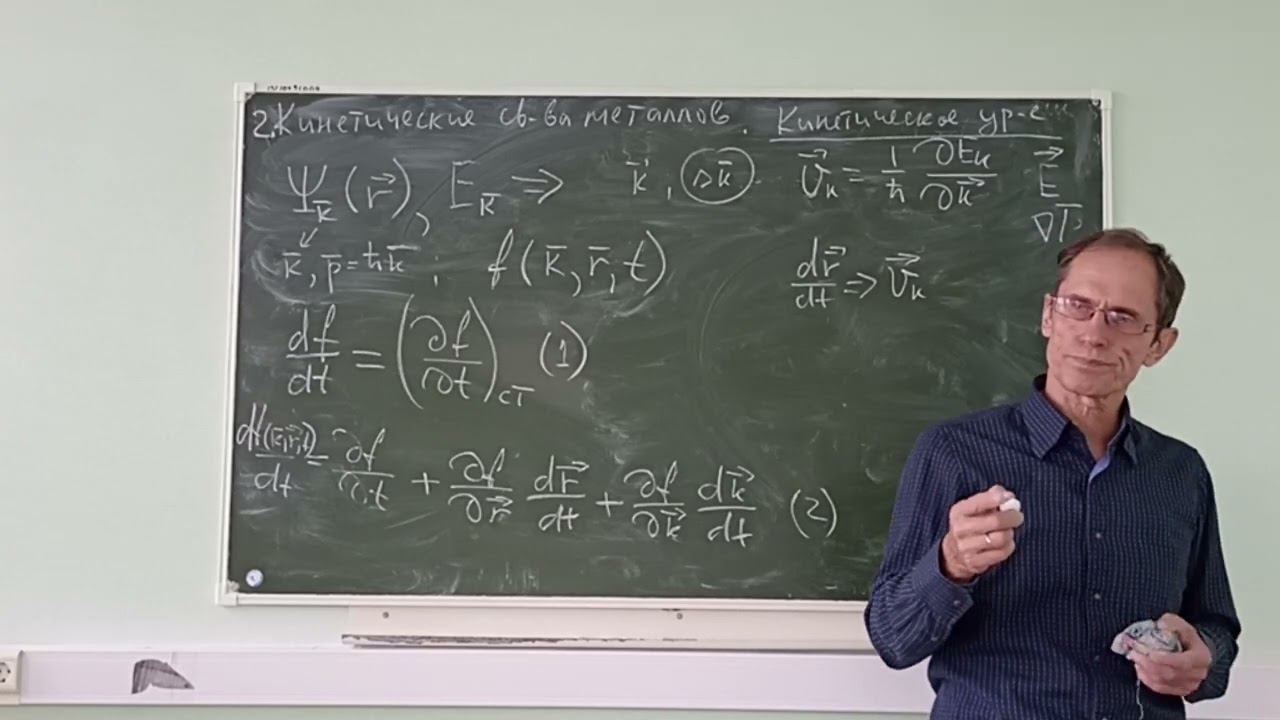 2. Кинетические св-ва металлов. Кинетическое ур-е
Ψ_k̄(r⃗), E_k̄ ⇒ k⃗, Δk̄ v⃗_k = 1/ħ ∂E_k/∂k⃗ E⃗
∇T
k̄, p̄ = ħk̄; f(k̄, r̄, t) dr⃗/dt ⇒ v⃗_k
df/dt = (∂f/∂t)_ст (1)
df(k̄,r⃗,t)/dt = ∂f/∂t + ∂f/∂r⃗ dr⃗/dt + ∂f/∂k⃗ dk⃗/dt (2)